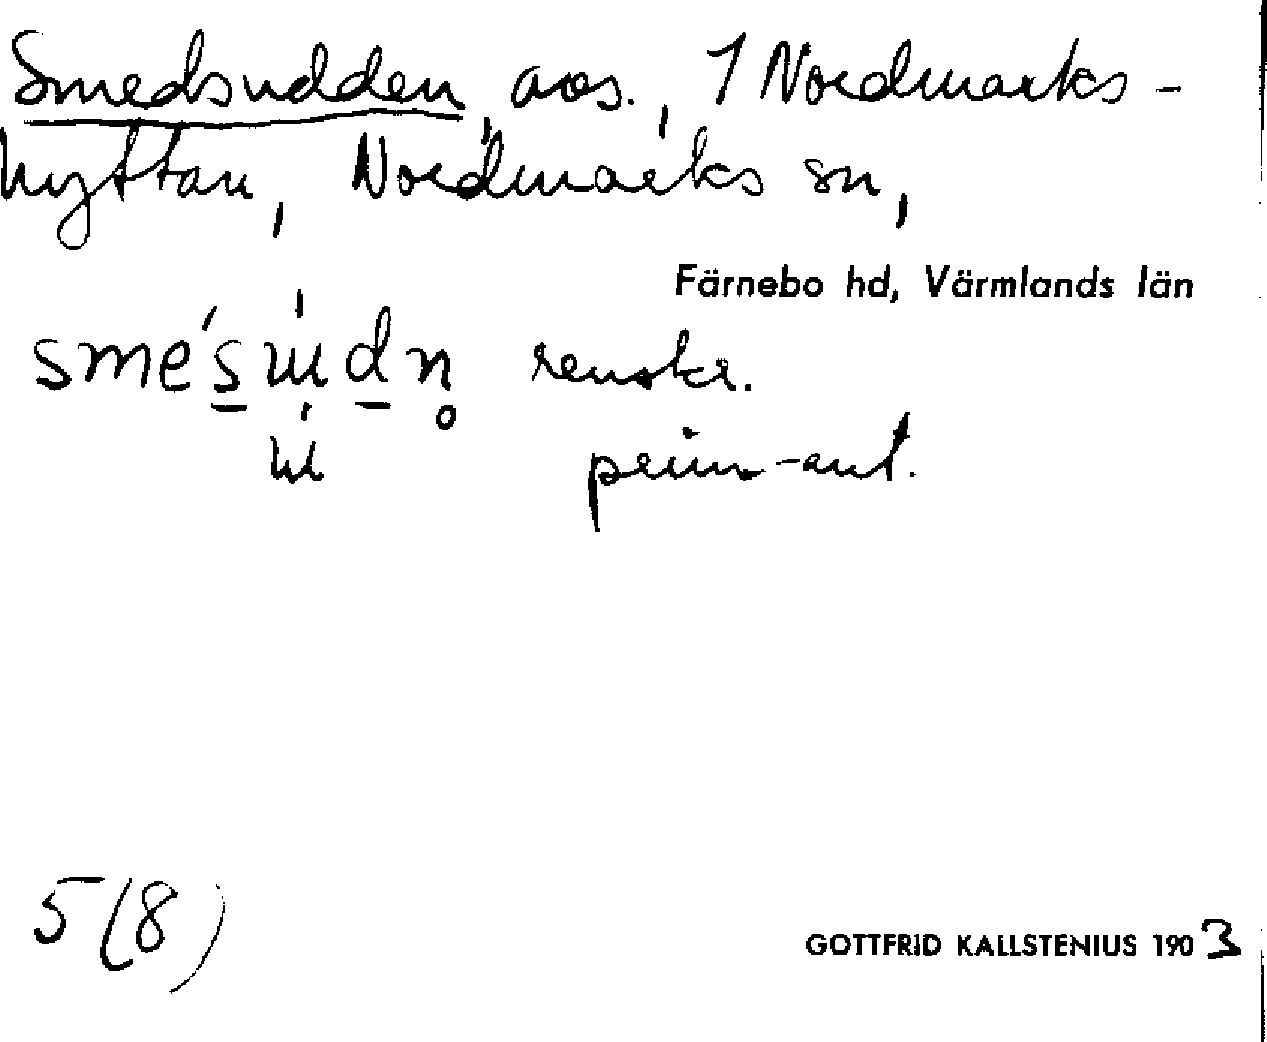 Smedsudden, avs., 1 Nordmarks-
hyttan, Nordmarks sn,
Färnebo hd, Värmlands län
renskr.
prim-ant.
5(8)
GOTTFRID KALLSTENIUS 1903